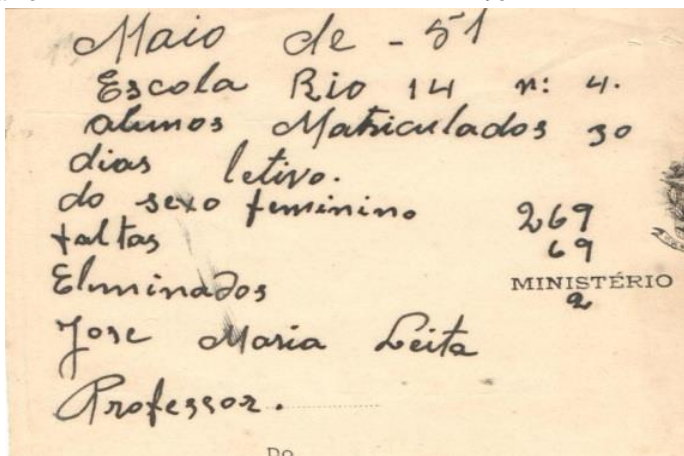 Maio de - 51
Escola Rio 14 n: 4.
alunos Matriculados 30
dias letivo.
do sexo feminino 269
faltas 69
Elminados 2
MINISTÉRIO
Jose Maria Leita
Professor.
Do